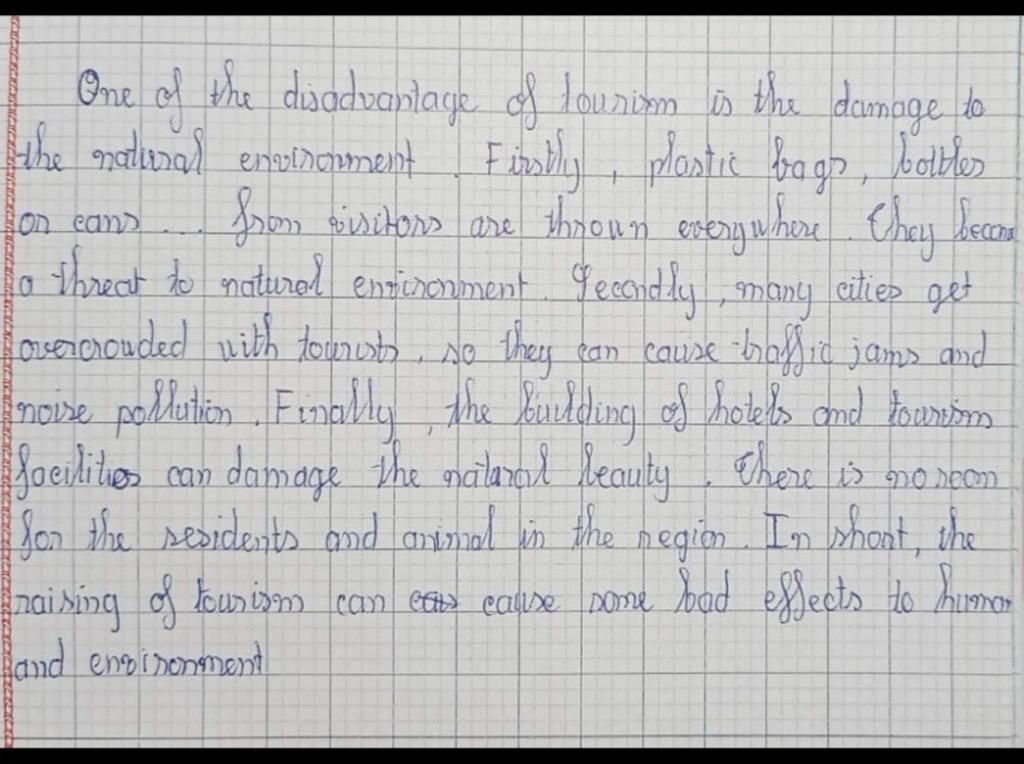 One of the disadvantage of tourism is the damage to
the natural environment. Firstly, plastic bags, bottles
or cans ... from visitors are thrown everywhere. They become
a threat to natural environment. Secondly, many cities get
overcrowded with tourists, so they can cause traffic jams and
noise pollution. Finally, the building of hotels and tourism
facilities can damage the natural beauty. There is no room
for the residents and animal in the region. In short, the
raising of tourism can cause some bad effects to human
and environment